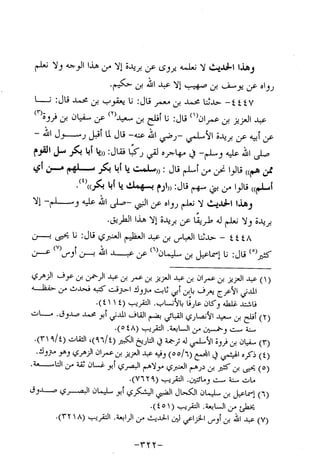 وهذا الحديث لا نعلمه يروى عن بريدة إلا من هذا الوجه ولا نعلم
رواه عن يوسف بن صهيب إلا عبد الله بن حكيم.
٤٤٤٧- حدثنا محمد بن معمر قال: نا يعقوب بن محمد قال: نـــا
عبد العزيز بن عمران(١) قال: نا أفلح بن سعيد(٢) عن سفيان بن فروة(٣)
عن أبيه عن بريدة الأسلمي -رضي الله عنه- قال لما أقبل رســـول الله -
صلى الله عليه وسلم- في مهاجره لقي ركبًا فقال: «يا أبا بكر سل القوم
ممن هم» قالوا نحن من أسلم قال: «سلمت يا أبا بكر ســـلهم مـــن أي
أسلم» قالوا من بني سهم قال: «ارم بسهمك يا أبا بكر»(٤).
وهذا الحديث لا نعلم رواه عن النبي -صلى الله عليه وســـلم- إلا
بريدة ولا نعلم له طريقًا عن بريدة إلا هذا الطريق.
٤٤٤٨- حدثنا العباس بن عبد العظيم العنبري قال: نا يحيى بـــن
كثير(٥) قال: نا إسماعيل بن سليمان(٦) عن عبـــد الله بـــن أوس(٧) عـــن
(١) عبد العزيز بن عمران بن عبد العزيز بن عمر بن عبد الرحمن بن عوف الزهري
المدني الأعرج يعرف بابن أبي ثابت متروك احترقت كتبه فحدث من حفظـــه
فاشتد غلطه وكان عارفًا بالأنساب. التقريب (٤١١٤).
(٢) أفلح بن سعيد الأنصاري القبائي بضم القاف المدني أبو محمد صدوق. مـــات
سنة ست وخمسين من السابعة. التقريب (٥٤٨)
(٣) سفيان بن فروة الأسلمي له ترجمة في التاريخ الكبير (٩٦/٤)، الثقات (٣١٩/٤)
(٤) ذكره الهيثمي في المجمع (٥٥/٦) وفيه عبد العزيز بن عمران الزهري وهو متروك.
(٥) يحيى بن كثير بن درهم العنبري مولاهم البصري أبو غسان ثقة من التاســـعة.
مات سنة ست ومائتين. التقريب (٧٦٢٩)
(٦) إسماعيل بن سليمان الكحال الضبي اليشكري أبو سليمان البصـــري صـــدوق
يخطئ من السابعة. التقريب (٤٥١).
(٧) عبد الله بن أوس الخزاعي لين الحديث من الرابعة. التقريب (٣٢١٨)
-٣٢٢-